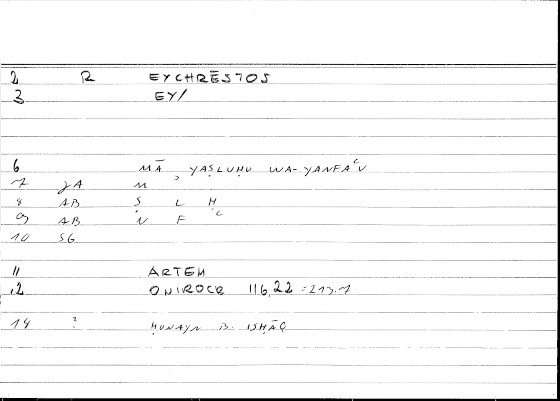 2 R EYCHRĒSTOS
3 EY/
6 MĀ YAṢLUḤU WA-YANFAʿU
7 M
8 AB Ṣ L Ḥ
9 AB N F ʿ
10 SG
11 ARTEM
12 ONIROCR 116,22 = 213.7
14 ? ḤUNAYN B. ISḤĀQ